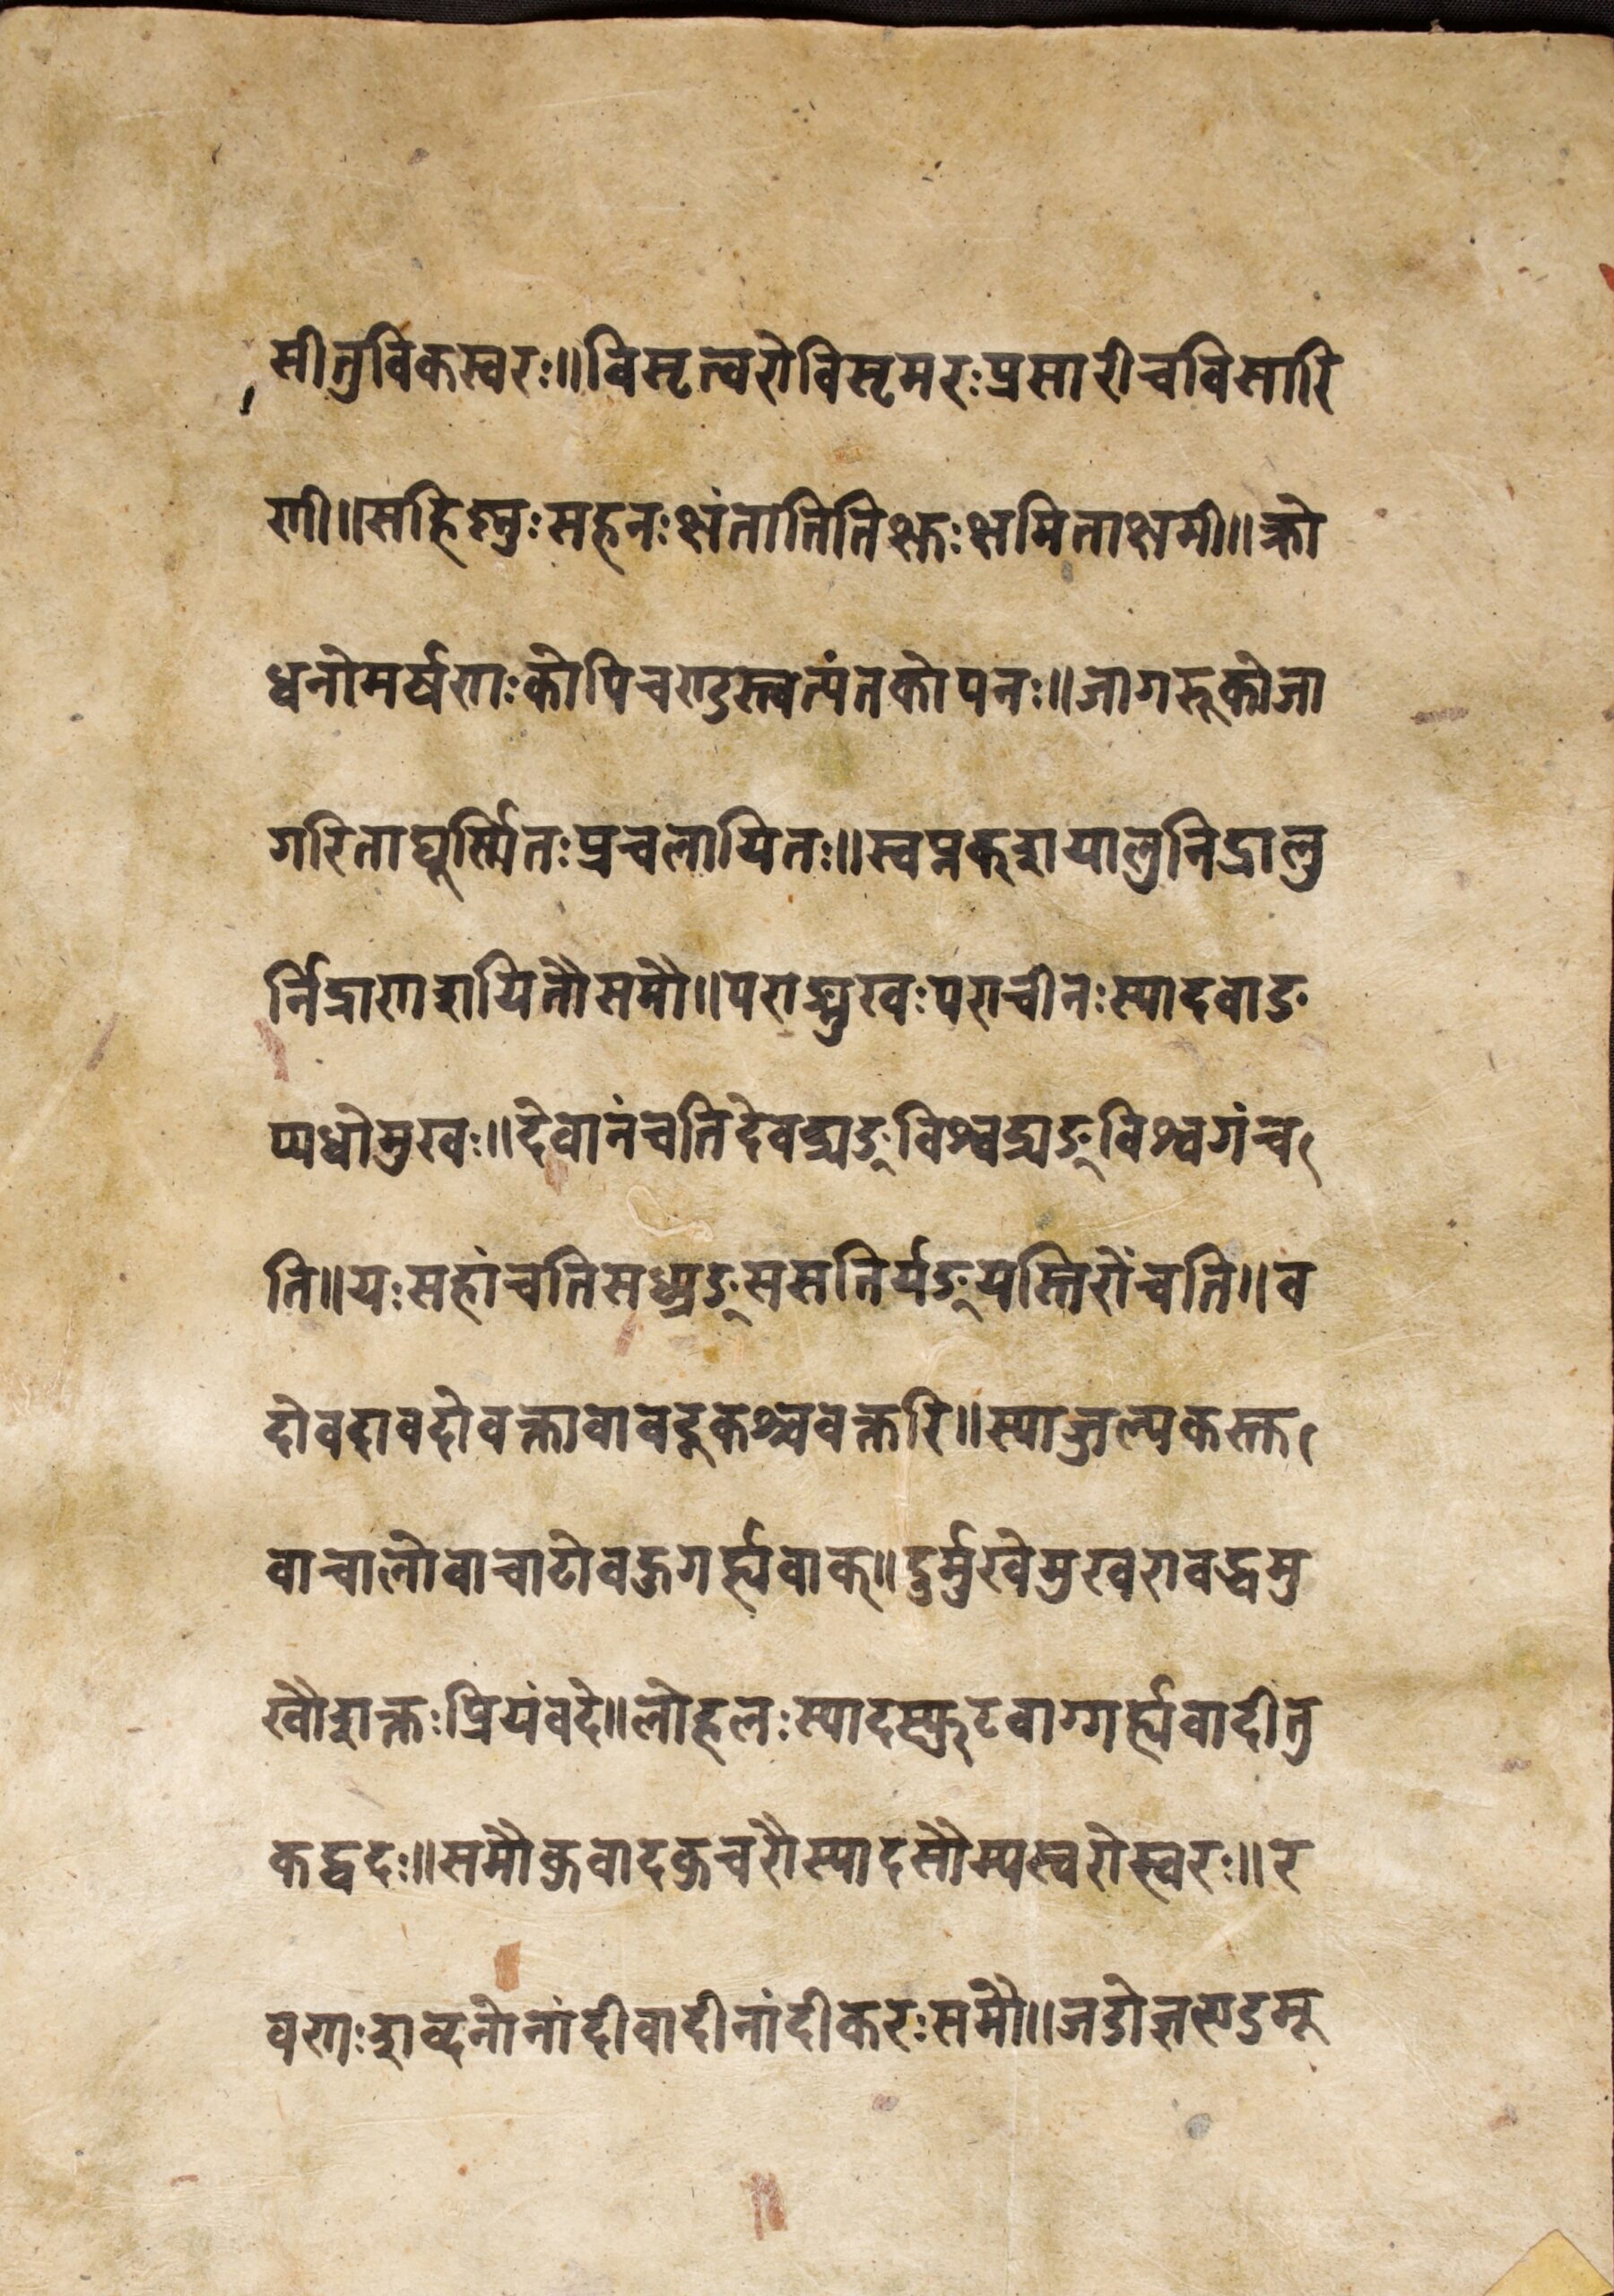 सीतुविकस्वरः॥विसृत्वरोविसृमरःप्रसारीचविसारि
णी॥सहिष्नुःसहनःक्षंतातितिक्षुःक्षमिताक्षमी॥क्रो
धनोमर्षणःकोपिचण्डस्त्वत्यंतकोपनः॥जागरूकोजा
गरिताघूर्स्मितःप्रचलायितः॥स्वप्नक्शयालुनिद्रालु
र्निद्राणशयितौसमौ॥पराङ्मुखःपराचीनःस्यादवाङ
प्यधोमुखः॥देवानंचतिदेवद्र्यङ्विश्वद्र्यङ्विश्वगंच
ति॥यःसहांचतिसध्र्यङ्ससतिर्यङ्यस्तिरोंचति॥व
दोवदावदोवक्तावावदूकश्चवक्तरि॥स्याज्जल्पकस्तु
वाचालोवाचाटोवहुगर्ह्यवाक्॥दुर्मुखेमुखरावद्धमु
खौशक्तःप्रियंवदे॥लोहलःस्यादस्फुटवाग्गर्ह्यवादीतु
कद्वदः॥समौकुवादकुचरौस्यादसौम्यस्वरोस्वरः॥र
वणःशव्दनोनांदीवादीनांदीकरःसमौ॥जडोज्ञएडमू